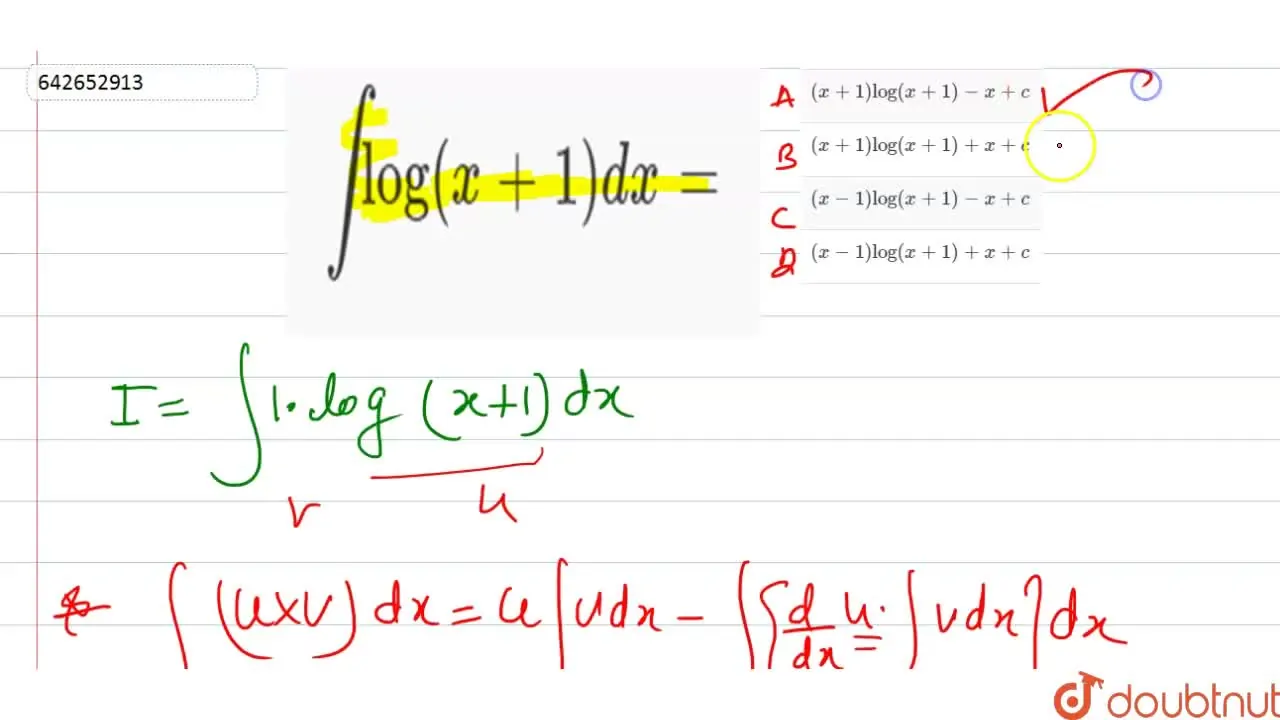 642652913
∫log(x + 1)dx =
A (x + 1)log(x + 1) − x + c
B (x + 1)log(x + 1) + x + c
C (x − 1)log(x + 1) − x + c
D (x − 1)log(x + 1) + x + c
I = ∫ 1. log (x+1) dx
v u
∫ (u×v) dx = u ∫ v dx − ∫ { d/dx u. ∫ v dx } dx
doubtnut